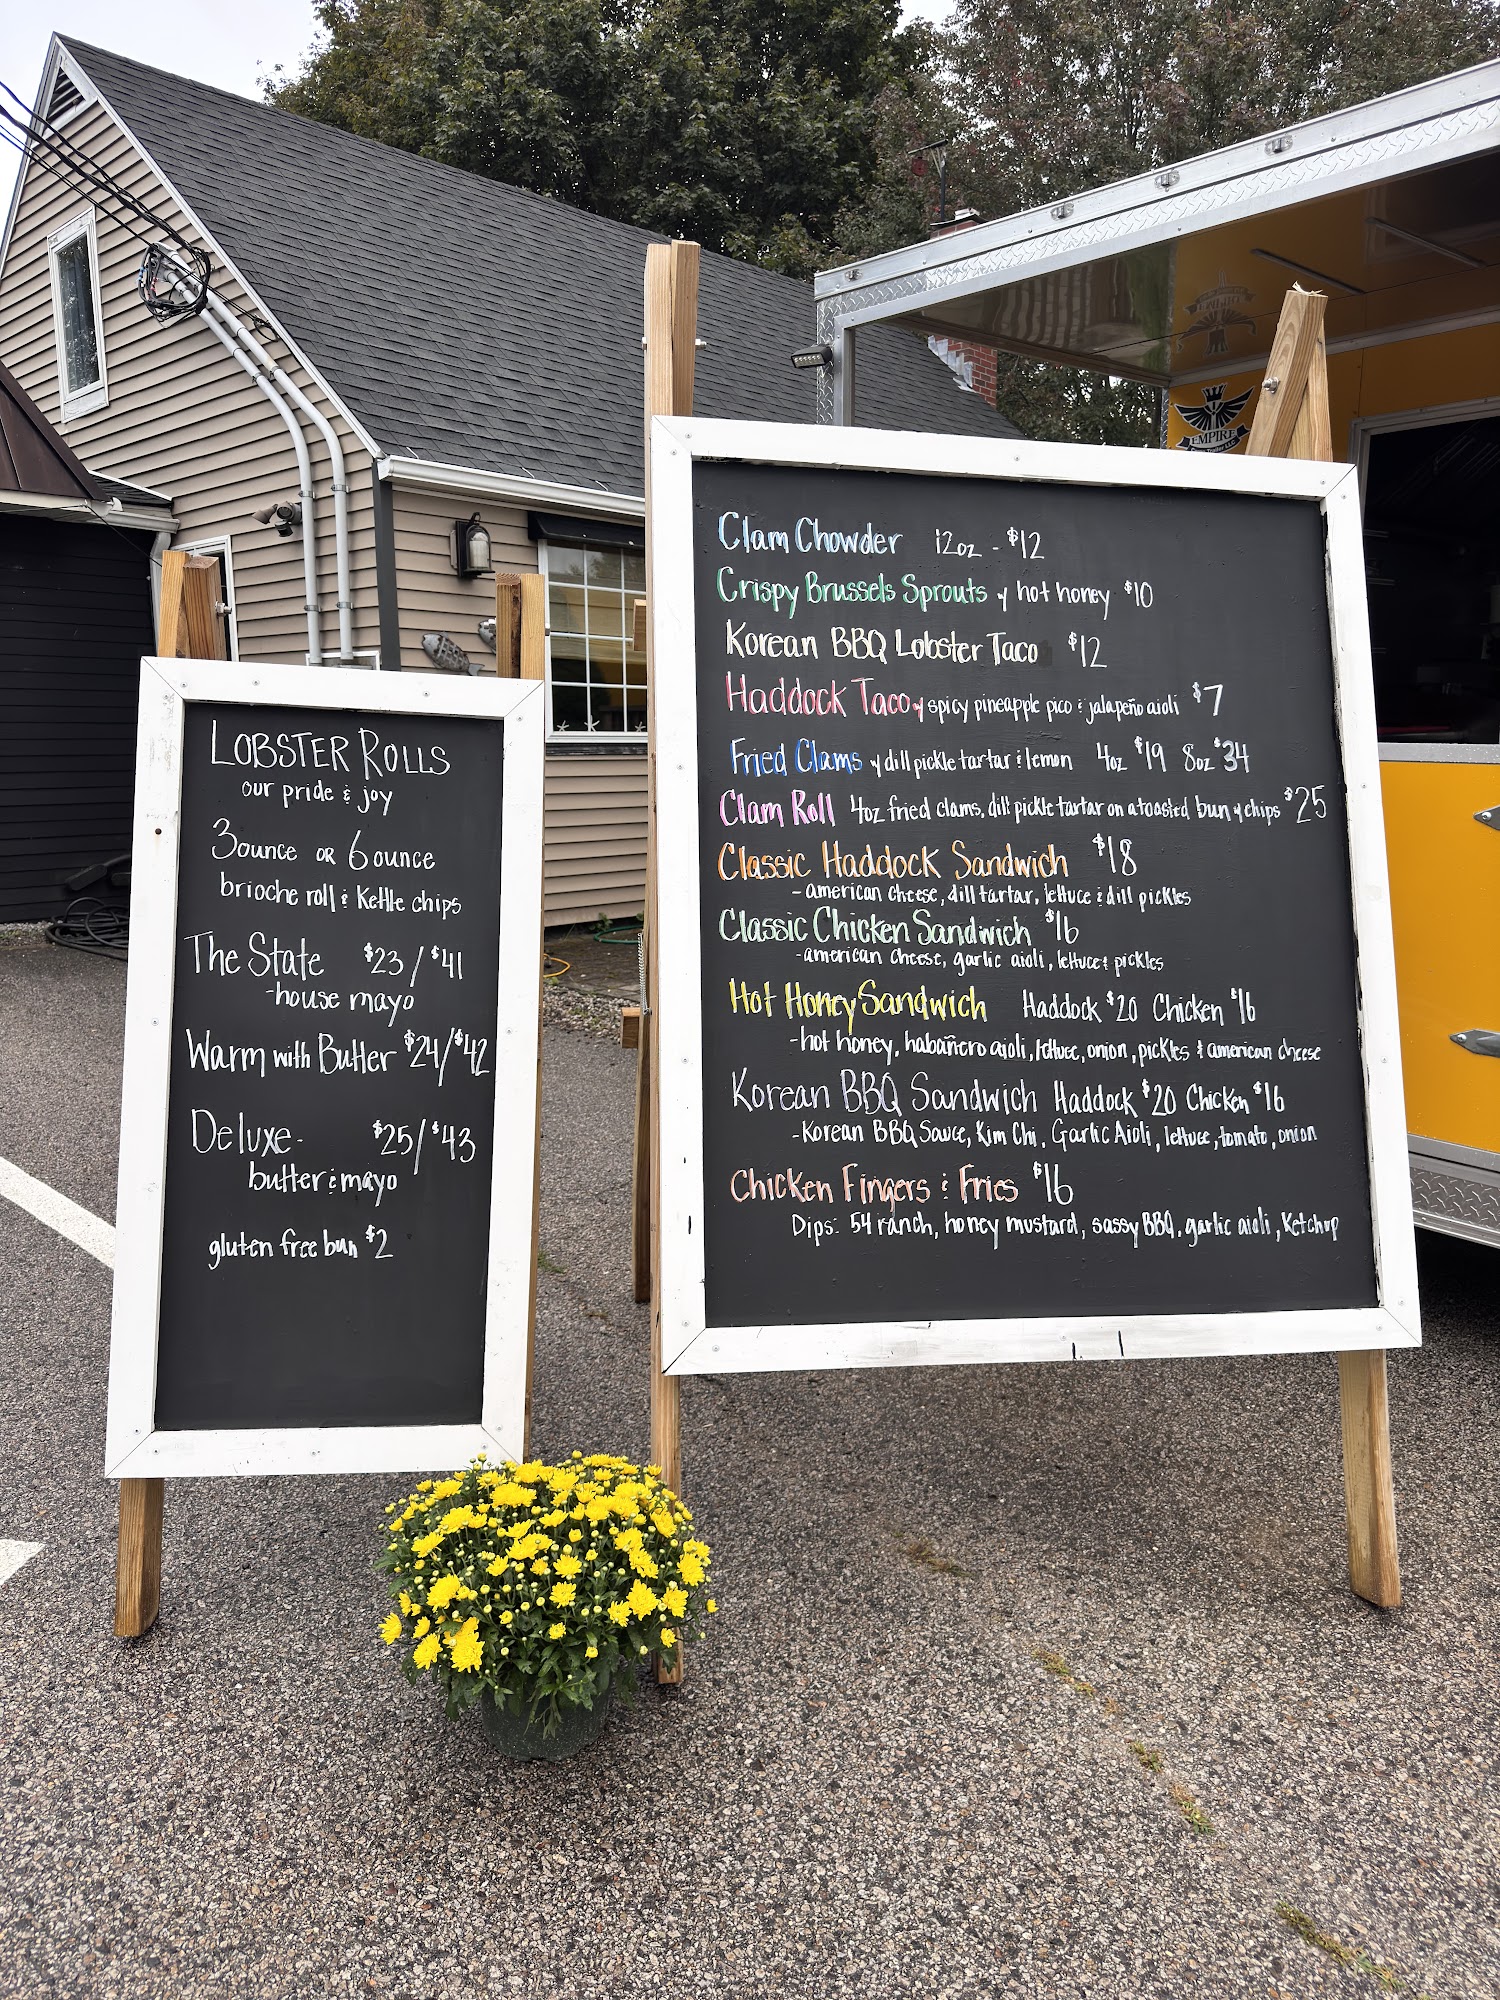 LOBSTER ROLLS
our pride & joy
3 ounce OR 6 ounce
brioche roll & Kettle chips
The State $23/$41
-house mayo
Warm with Butter $24/$42
Deluxe- $25/$43
butter & mayo
gluten free bun $2
Clam Chowder 12oz - $12
Crispy Brussels Sprouts w/ hot honey $10
Korean BBQ Lobster Taco $12
Haddock Taco w/ spicy pineapple pico & jalapeño aioli $7
Fried Clams w/ dill pickle tartar & lemon 4oz $19 8oz $34
Clam Roll 4oz fried clams, dill pickle tartar on a toasted bun w/ chips $25
Classic Haddock Sandwich $18
-american cheese, dill tartar, lettuce & dill pickles
Classic Chicken Sandwich $16
-american cheese, garlic aioli, lettuce & pickles
Hot Honey Sandwich Haddock $20 Chicken $16
-hot honey, habañero aioli, lettuce, onion, pickles & american cheese
Korean BBQ Sandwich Haddock $20 Chicken $16
-Korean BBQ Sauce, Kim Chi, Garlic Aioli, lettuce, tomato, onion
Chicken Fingers & Fries $16
Dips: 54 ranch, honey mustard, sassy BBQ, garlic aioli, Ketchup
EMPIRE